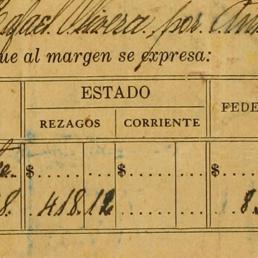 Rafael Olivera, por
que al margen se expresa:
ESTADO
REZAGOS CORRIENTE FEDE
$ $ $
8. 418.12 8